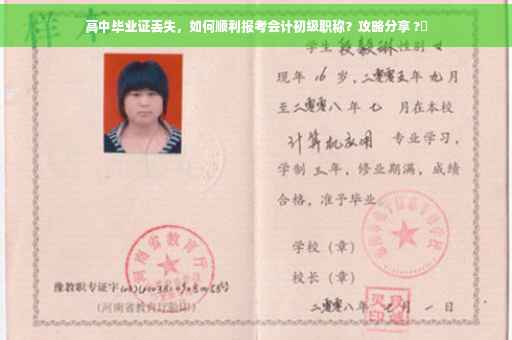 高中毕业证丢失，如何顺利报考会计初级职称？攻略分享？
样本
学生 段毅琳 性别 女
现年 16 岁，二零零五年 九 月
至二零零八年 七 月在本校
计算机应用 专业学习，
学制 三 年，修业期满，成绩
合格，准予毕业
学校（章）
校长（章）
豫教职专证字
（河南省教育厅验印）
二零零八年 七 月 一 日
河南省教育厅